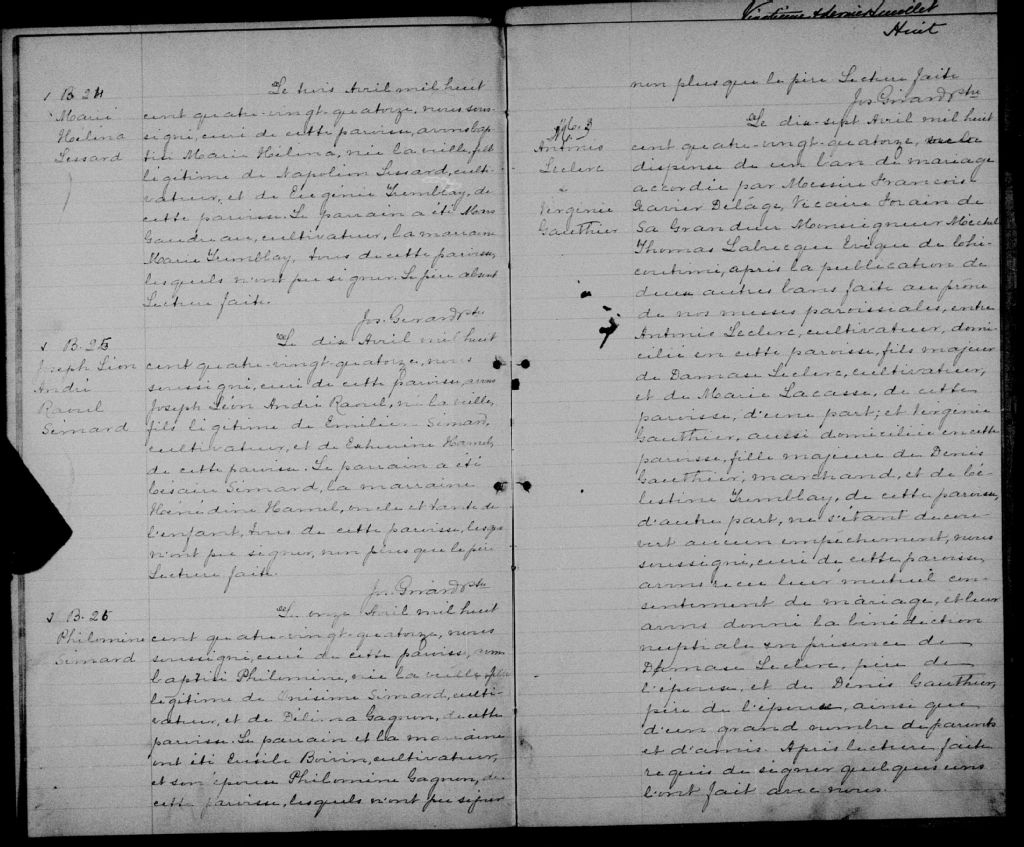 B. 24
Marie
Hélina
Lessard
Le trois Avril mil huit
cent quatre-vingt-quatorze, nous sous-
signé, curé de cette paroisse, avons bap-
tisé Marie Hélina, née la veille, fille
légitime de Napoléon Lessard, culti-
vateur, et de Eugénie Tremblay, de
cette paroisse. Le parrain a été
Gaudreau, cultivateur, la marraine
Marie Tremblay, tous de cette paroisse,
lesquels n'ont pu signer. Le père absent
Lecture faite.
Jos. Girard Ptre
B. 25
Joseph Léon
André
Raoul
Simard
Le dix Avril mil huit
cent quatre-vingt-quatorze, nous
soussigné, curé de cette paroisse, avons
Joseph Léon André Raoul, né la veille,
fils légitime de Emilien Simard,
cultivateur, et de Exhérine Hamel,
de cette paroisse. Le parrain a été
Césaire Simard, la marraine
Hénédine Hamel, oncle et tante de
l'enfant, tous de cette paroisse, lesquels
n'ont pu signer, non plus que le père
Lecture faite.
Jos. Girard Ptre
B. 26
Philomène
Simard
Le onze Avril mil huit
cent quatre-vingt-quatorze, nous
soussigné, curé de cette paroisse, avons
baptisé Philomène, née la veille, fille
légitime de Onésime Simard, culti-
vateur, et de Délima Gagnon, de cette
paroisse. Le parrain et la marraine
ont été Eusèbe Boivin, cultivateur,
et son épouse Philomène Gagnon, de
cette paroisse, lesquels n'ont pu signer
Vingtième & dernier feuillet
Huit
non plus que le père Lecture faite
Jos. Girard Ptre
M. 3
Antonis
Leclerc
&
Virginie
Gauthier
Le dix-sept Avril mil huit
cent quatre-vingt-quatorze, vu la
dispense de un ban de mariage
accordée par Messire François
Xavier Délâge, Vicaire Forain de
Sa Grandeur Monseigneur Michel
Thomas Labrecque Evêque de Chi-
coutimi, après la publication de
deux autres bans faite au prône
de nos messes paroissiales, entre
Antonis Leclerc, cultivateur, domi-
cilié en cette paroisse, fils majeur
de Damase Leclerc, cultivateur,
et de Marie Lacasse, de cette
paroisse, d'une part; et Virginie
Gauthier, aussi domiciliée en cette
paroisse, fille majeure de Denis
Gauthier, marchand, et de Cé-
lestine Tremblay, de cette paroisse,
d'autre part, ne s'étant décou-
vert aucun empêchement, nous
soussigné, curé de cette paroisse,
avons reçu leur mutuel con-
sentement de mariage, et leur
avons donné la bénédiction
nuptiale en présence de
Damase Leclerc, père de
l'époux, et de Denis Gauthier,
père de l'épouse, ainsi que
d'un grand nombre de parents
et d'amis. Après lecture faite
requis de signer quelques uns
l'ont fait avec nous.